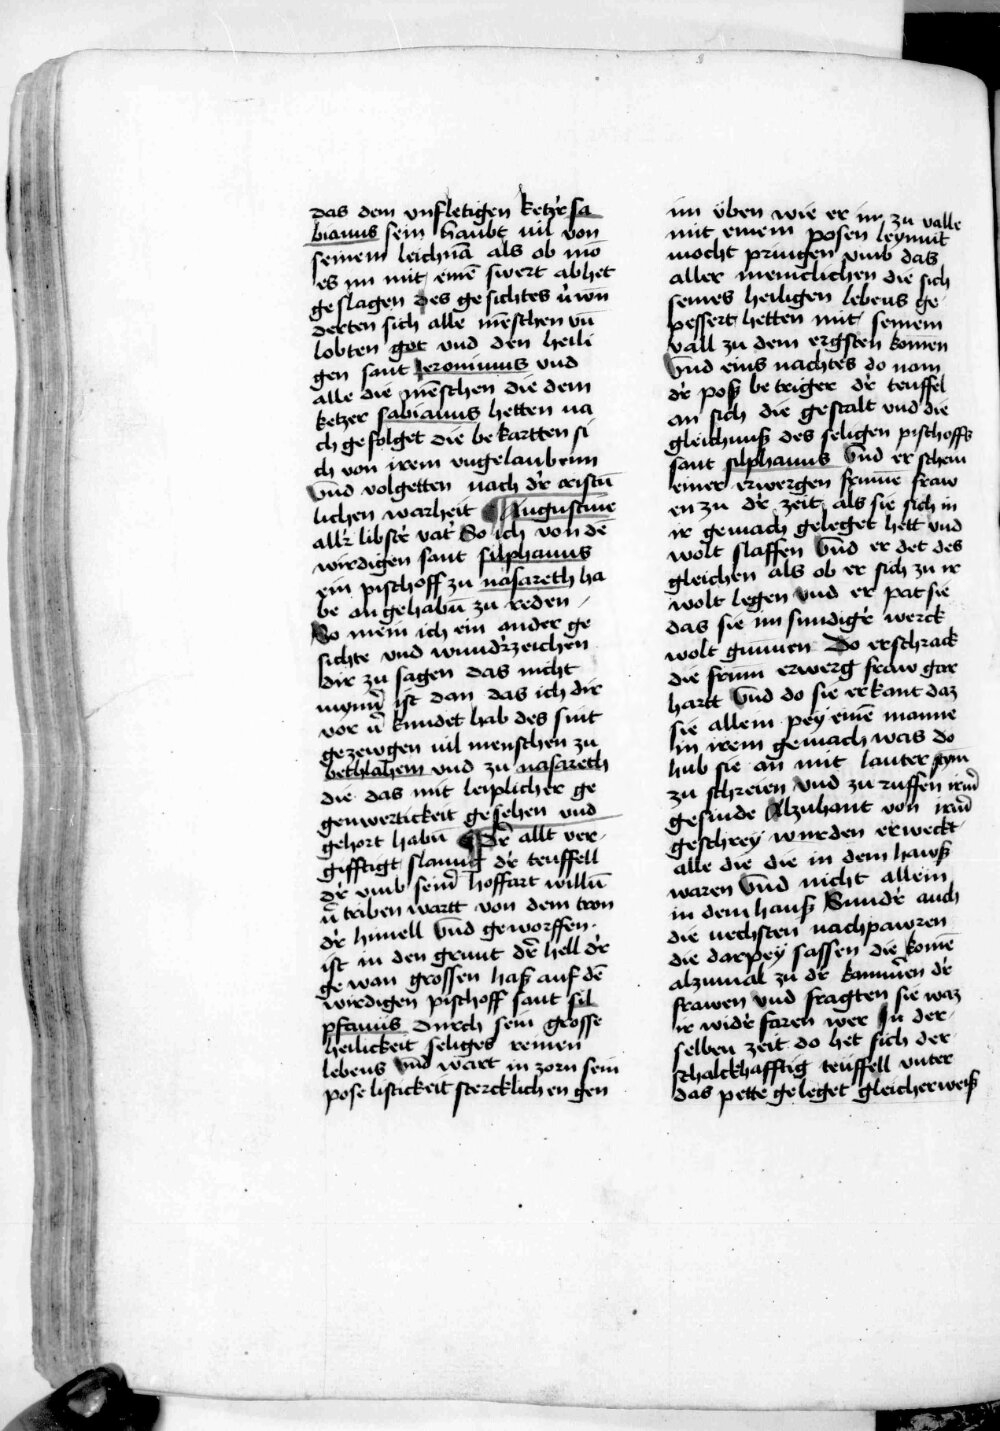 das dem vnfletigen ketzꝛ sa
bianus sein haubt vil von
seinem leichnā als ob mō
es im mit einē swert abhet
geslagen des gesichtes v̄wū
derten sich alle mēschen vū
lobten got vnd den heili
gen sant Jeronimus vnd
alle die mēschen die dem
ketzer sabianus hetten na
ch gefolget die bekartten si
ch von irem vngelaubnim
Vnd volgetten nach dʼr cristē
lichen warheit ¶ Augustine
allʼr libstʼr vatʼ So ich von dē
wirdigen sant silphanus
ein pischoff zu nasareth ha
be angehabū zu reden /
So mein ich ein ander ge
sichte vnd wundʼrzeichen
dir zu sagen das nicht
mynnʼ ist dan das ich dir
vor v̄kundet hab des sint
gezewgen vil menschen zu
bethlahem vnd zu nasareth
die das mit leiplicher ge
genwertickeit gesehen vnd
gehort habū ¶ Dʼr allt ver-
gifftigt slanng dʼr teuffell
dʼr vmb seinʼ hoffart willū
v̄triben wartt von dem tron
dʼr himell vnd geworffen
ist in den grunt dʼr hell dʼr
gewan grossen haß auf dē
wirdigen pischoff sant sil
pfanus durch sein grosse
heilickeit seliges reinen
lebens vnd wart in zorn sein
pose listickeit stercklichen gen
im üben wie er im zu valle
mit einem posen leymut
mocht pringen vmb das
aller meniclichen die sich
seines heiligen lebens ge
pessert hetten mit seinem
vall zu dem ergsten komen
Vnd eins nachtes do nam
dʼr poß betriger dʼr teuffel
an sich die gestalt vnd die
gleichnuß des seligen pischoffs
sant silphanus Vnd erschein
einer erwergen frume fraw
en zu dʼr zeit als sie sich in
ir gemach geleget hett vnd
wolt slaffen Vnd er det des
gleichen als ob er sich zu ir
wolt legen vnd er pat sie
das sie im sundigʼr werck
wolt gunnen Do erschrack
die frum erwerg fraw gar
hart Vnd do sie erkant daz
sie allein pey einē manne
in irem gemach was do
hub sie an mit lauter stym
zu schreien vnd zu ruffen irm̄
gesinde Alzuhant von irm̄
geschrey wurden erweckt
alle die die in dem hawß
waren Vnd nicht allein
in dem hauß Sundʼr auch
die nechsten nachpawren
die darpey sassen die komē
alzumal zu dʼr kamm̄en dʼr
frawen vnd fragten sie waz
ir widʼrfaren wer In der
selben zeit do het sich der
schalckhafftig teuffell vnter
das pette geleget gleicherweiß